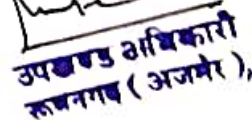 उपखण्ड अधिकारी
रूपनगढ़ ( अजमेर ),